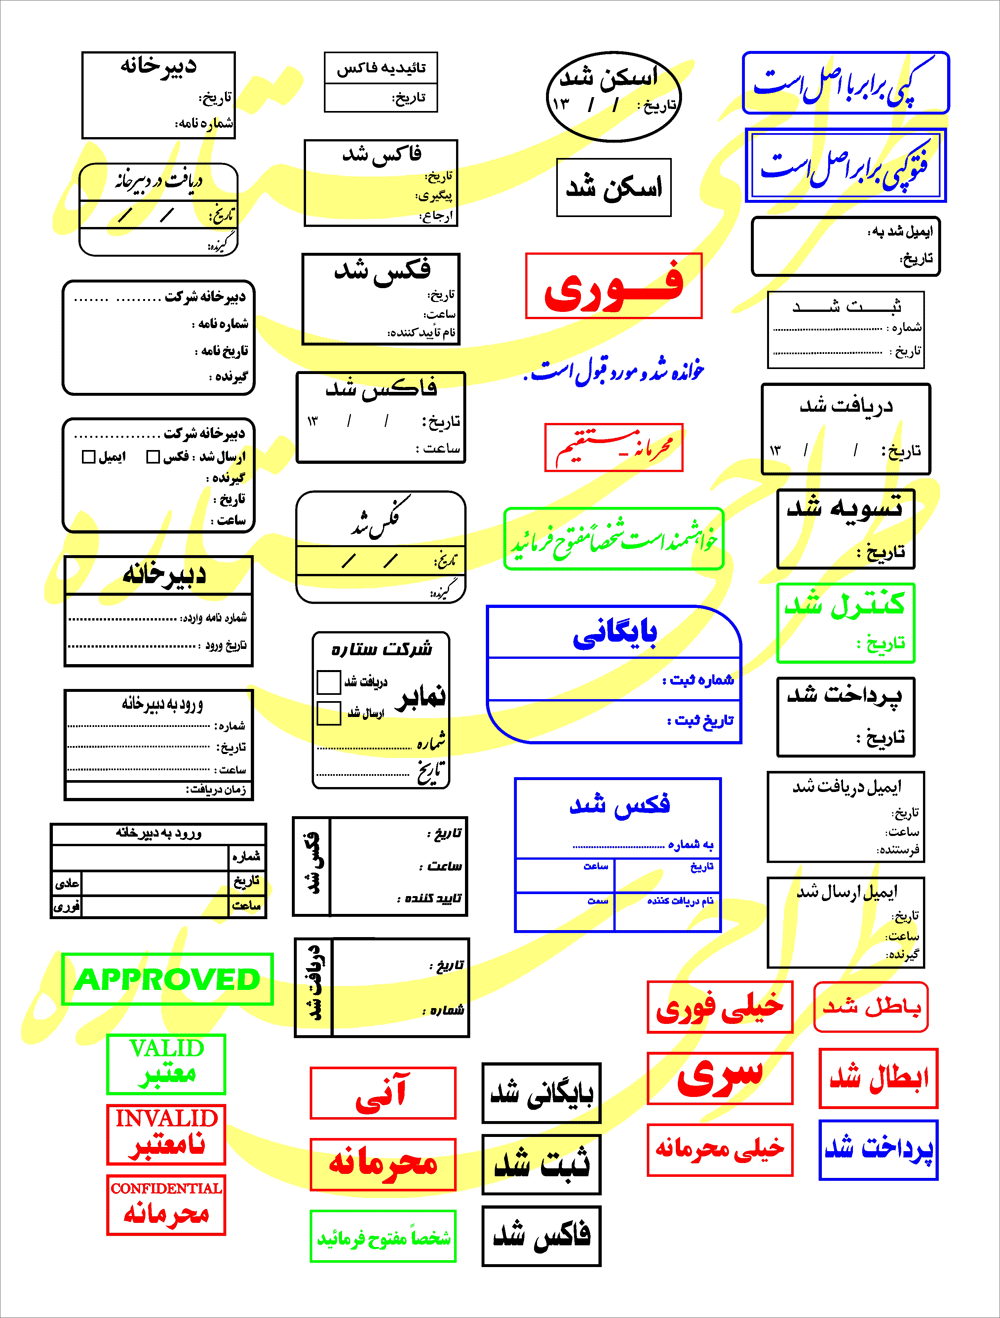 کپی برابر با اصل است
فتوکپی برابر اصل است
ایمیل شد به:
تاریخ:
ثبت شد
شماره :
تاریخ :
دریافت شد
تاریخ: / / ۱۳
تسویه شد
تاریخ :
کنترل شد
تاریخ :
پرداخت شد
تاریخ :
ایمیل دریافت شد
تاریخ:
ساعت:
فرستنده:
ایمیل ارسال شد
تاریخ:
ساعت:
گیرنده:
باطل شد
ابطال شد
پرداخت شد
اسکن شد
تاریخ: / / ۱۳
اسکن شد
فوری
خوانده شد و مورد قبول است.
محرمانه - مستقیم
خواهشمند است شخصاً مفتوح فرمائید
بایگانی
شماره ثبت :
تاریخ ثبت :
فکس شد
به شماره
تاریخ ساعت
نام دریافت کننده سمت
خیلی فوری
سری
خیلی محرمانه
بایگانی شد
ثبت شد
فاکس شد
تائیدیه فاکس
تاریخ:
فاکس شد
تاریخ:
پیگیری:
ارجاع:
فکس شد
تاریخ:
ساعت:
نام تأیید کننده:
فاکس شد
تاریخ: / / ۱۳
ساعت :
فکس شد
تاریخ: / /
گیرنده:
شرکت ستاره
نمابر
دریافت شد
ارسال شد
شماره
تاریخ
فکس شد
تاریخ :
ساعت :
تایید کننده :
دریافت شد
تاریخ :
شماره :
آنی
محرمانه
شخصاً مفتوح فرمائید
دبیرخانه
تاریخ:
شماره نامه:
دریافت در دبیرخانه
تاریخ: / /
گیرنده:
دبیرخانه شرکت ......... .......
شماره نامه :
تاریخ نامه :
گیرنده :
دبیرخانه شرکت .................
ارسال شد : فکس ایمیل
گیرنده :
تاریخ :
ساعت :
دبیرخانه
شماره نامه وارده:
تاریخ ورود :
ورود به دبیرخانه
شماره:
تاریخ:
ساعت :
زمان دریافت:
ورود به دبیرخانه
شماره
تاریخ عادی
ساعت فوری
APPROVED
VALID
معتبر
INVALID
نامعتبر
CONFIDENTIAL
محرمانه
طراحی ستاره
طراحی ستاره
طراحی ستاره